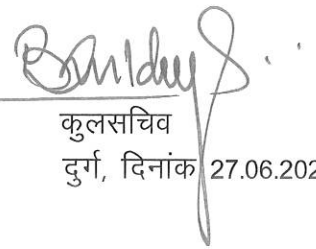 कुलसचिव
दुर्ग, दिनांक 27.06.202